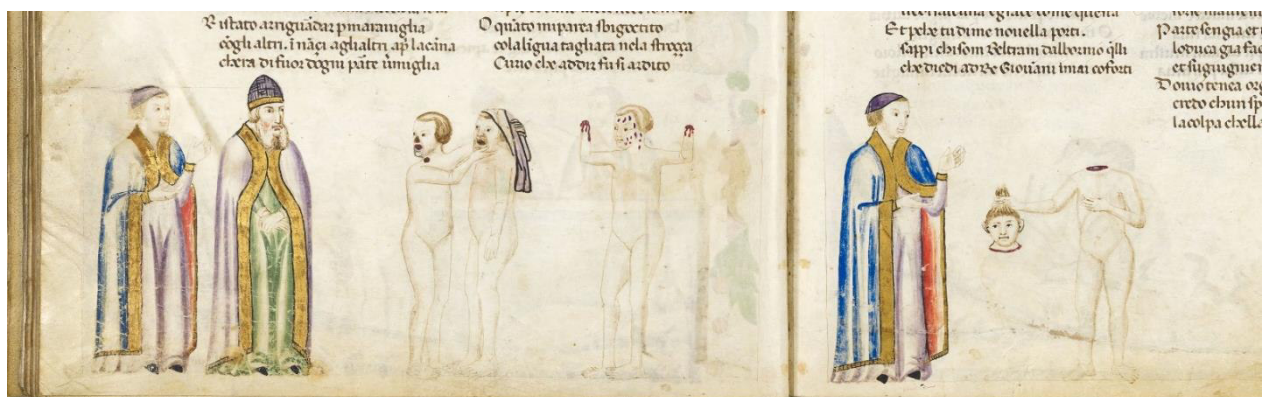 R istato arriguādar p maraviglia
cōgli altri. ināçi agli altri ap la cāna
chera di fuor dogni pāte ūmiglia
O quāto mi parea sbigoctito
cola ligua tagliata nela stroçça
Curio che addir fu si ardito
ne come questa
E t pche tu di me novella porti.
sappi chi som Beltram dal bornio qlli
che diedi ad Re Giovāni i mai coforti
Parte sengia et
lo duca gia
et
tenea
creto chun
la colpa chella